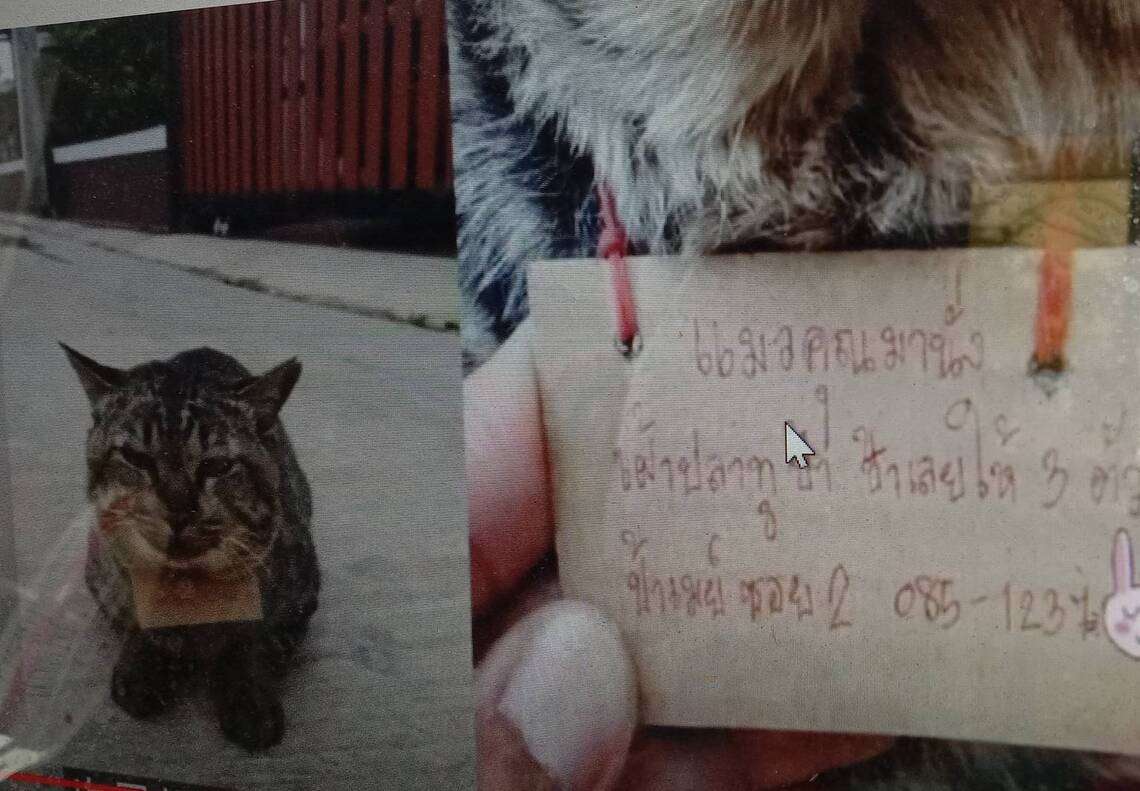 แมวคุณมานั่ง
เฝ้าปลาทูช้ำ ช้ำเลยให้ 3 ตัว
ป้าเมย์ ซอย 2 085-123